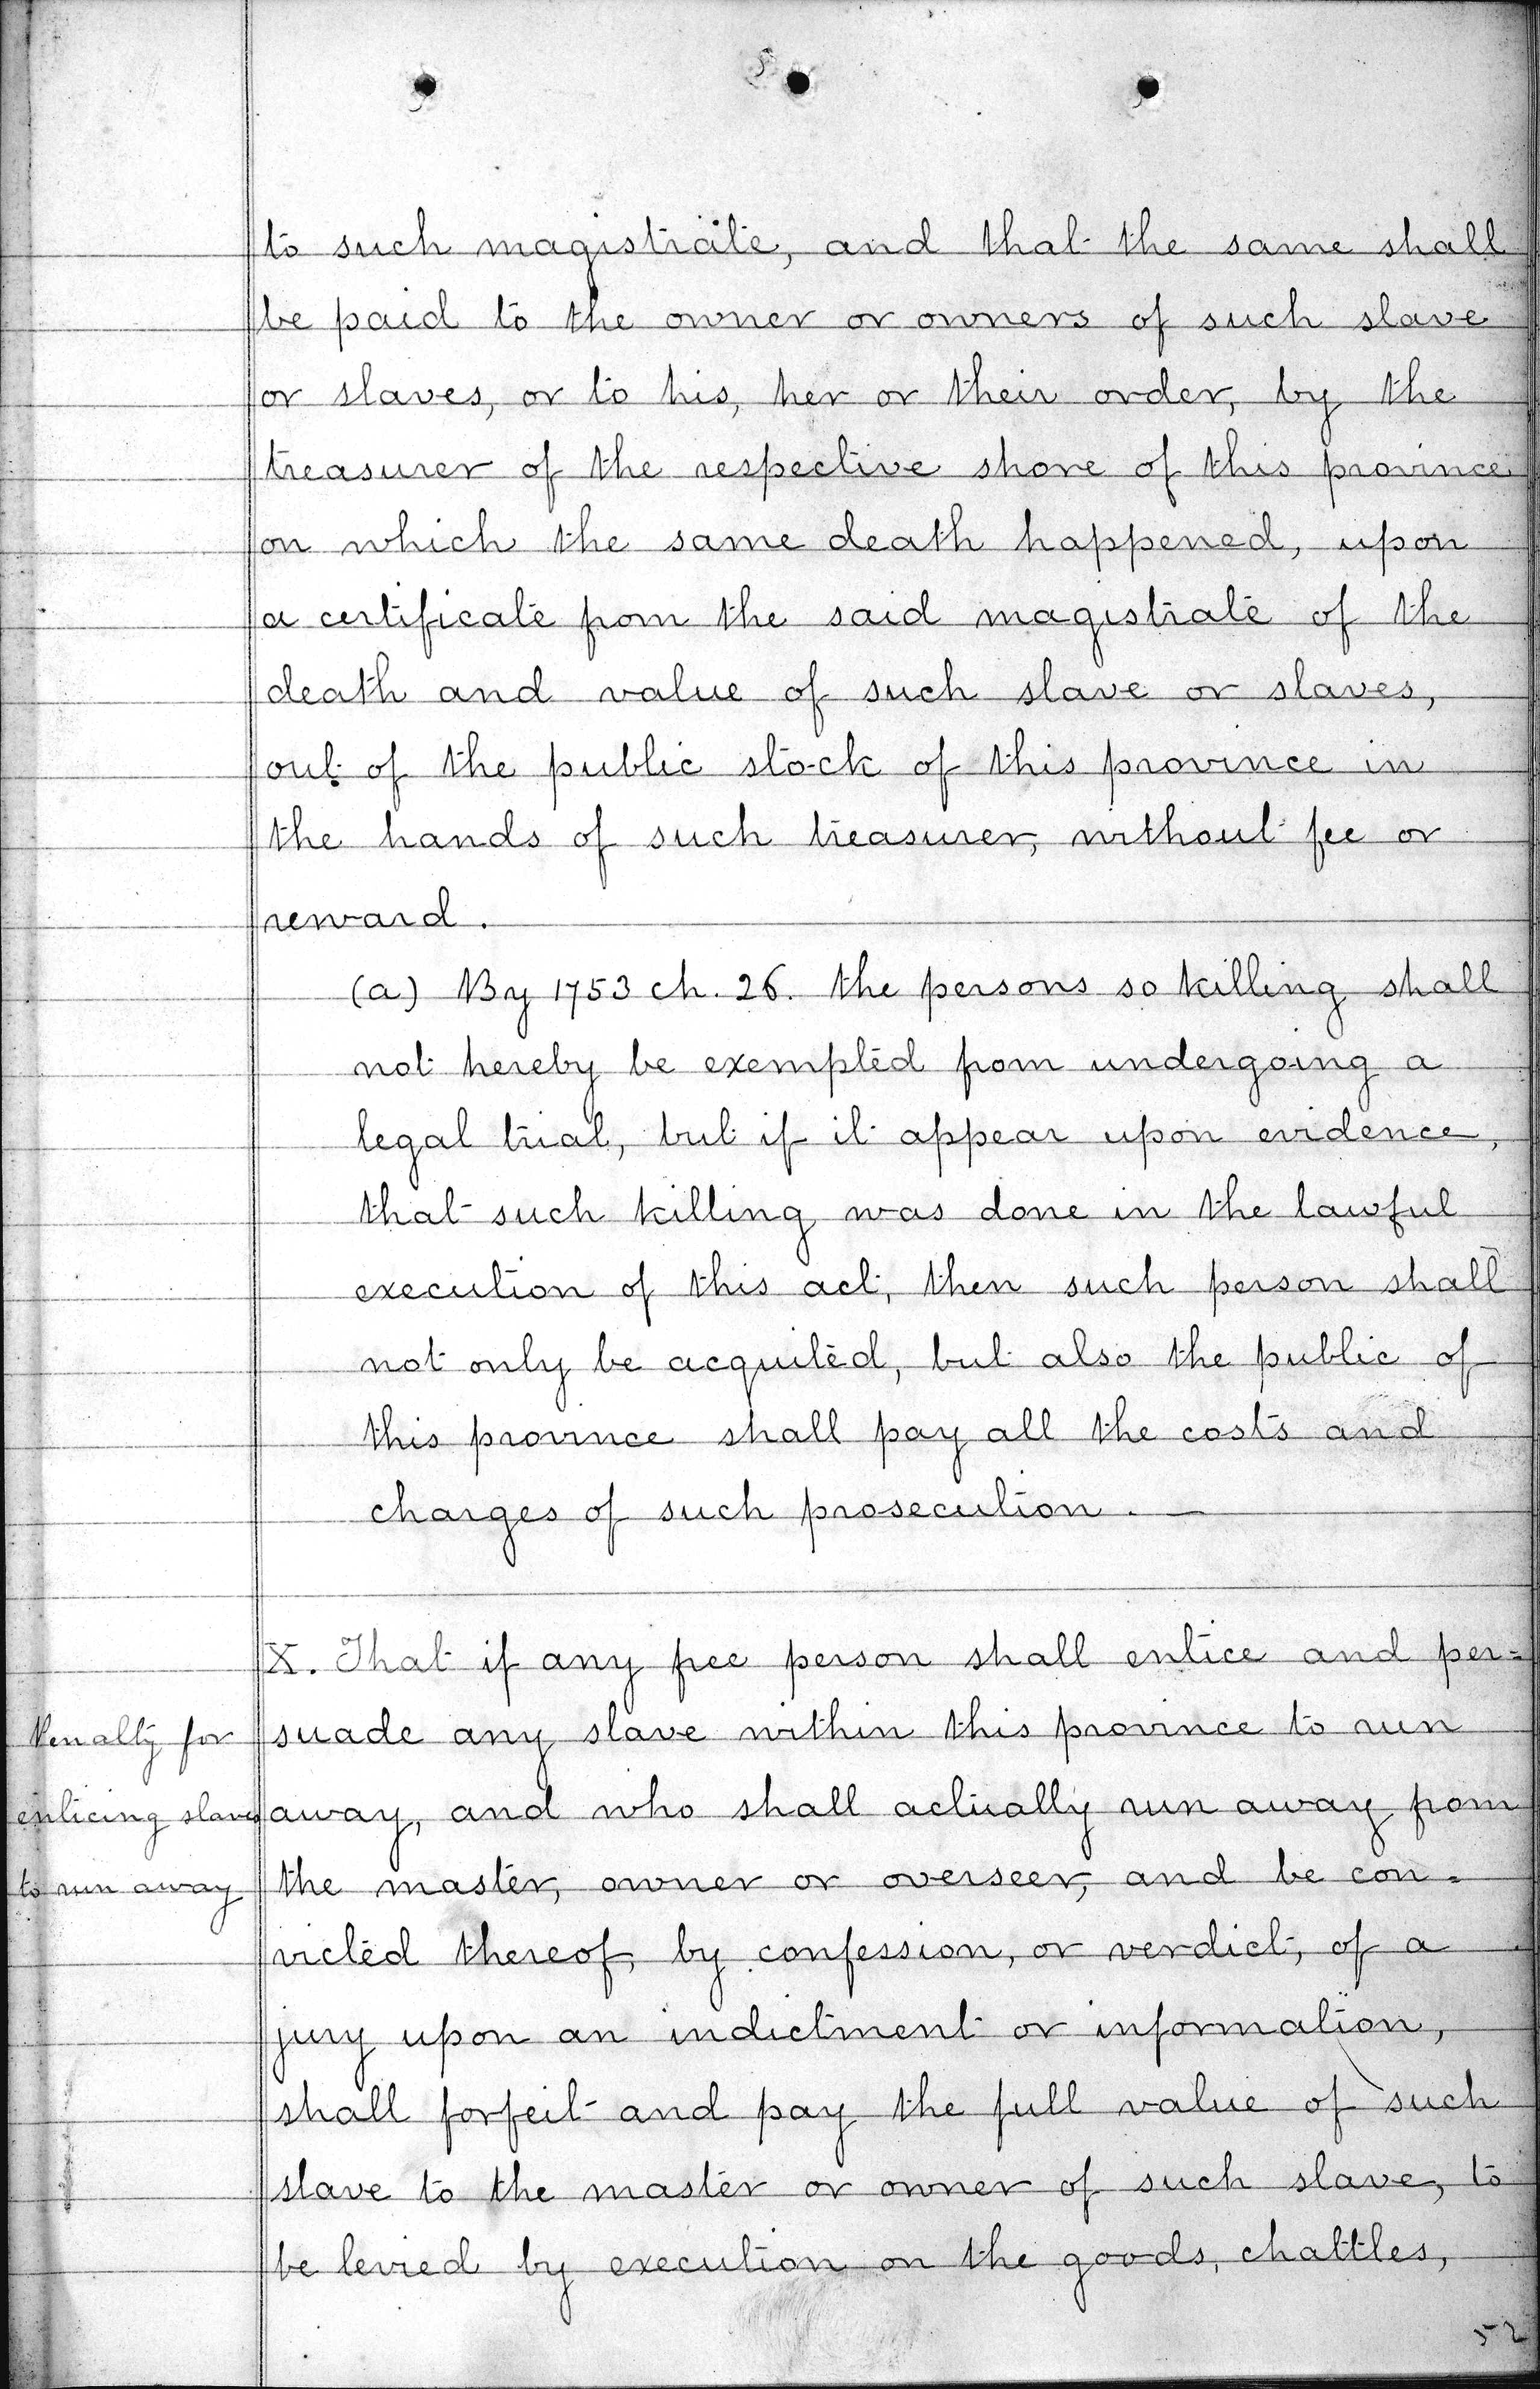 to such magistrate, and that the same shall
be paid to the owner or owners of such slave
or slaves, or to his, her or their order, by the
treasurer of the respective shore of this province
on which the same death happened, upon
a certificate from the said magistrate of the
death and value of such slave or slaves,
out of the public stock of this province in
the hands of such treasurer, without fee or
reward.
(a) By 1753 ch. 26. the persons so killing shall
not hereby be exempted from undergoing a
legal trial, but if it appear upon evidence,
that such killing was done in the lawful
execution of this act, then such person shall
not only be acquited, but also the public of
this province shall pay all the costs and
charges of such prosecution. —
X. That if any free person shall entice and per=
Penalty for
enticing slaves
to run away
suade any slave within this province to run
away, and who shall actually run away from
the master, owner or overseer, and be con=
victed thereof, by confession, or verdict, of a
jury upon an indictment or information,
shall forfeit and pay the full value of such
slave to the master or owner of such slave, to
be levied by execution on the goods, chattles,
52